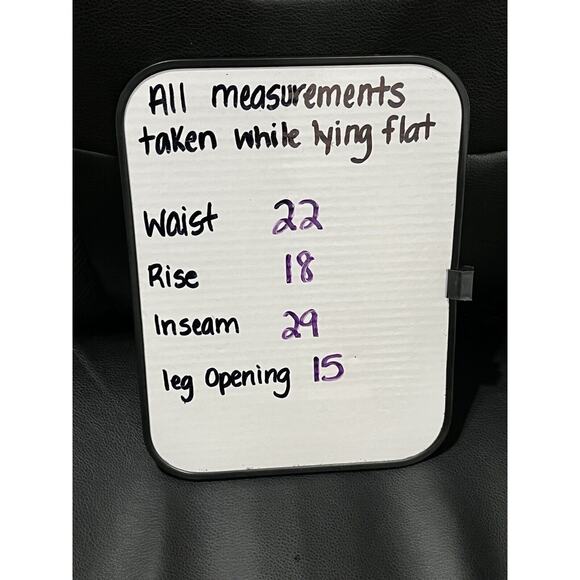 All measurements
taken while lying flat
Waist 22
Rise 18
Inseam 29
leg Opening 15